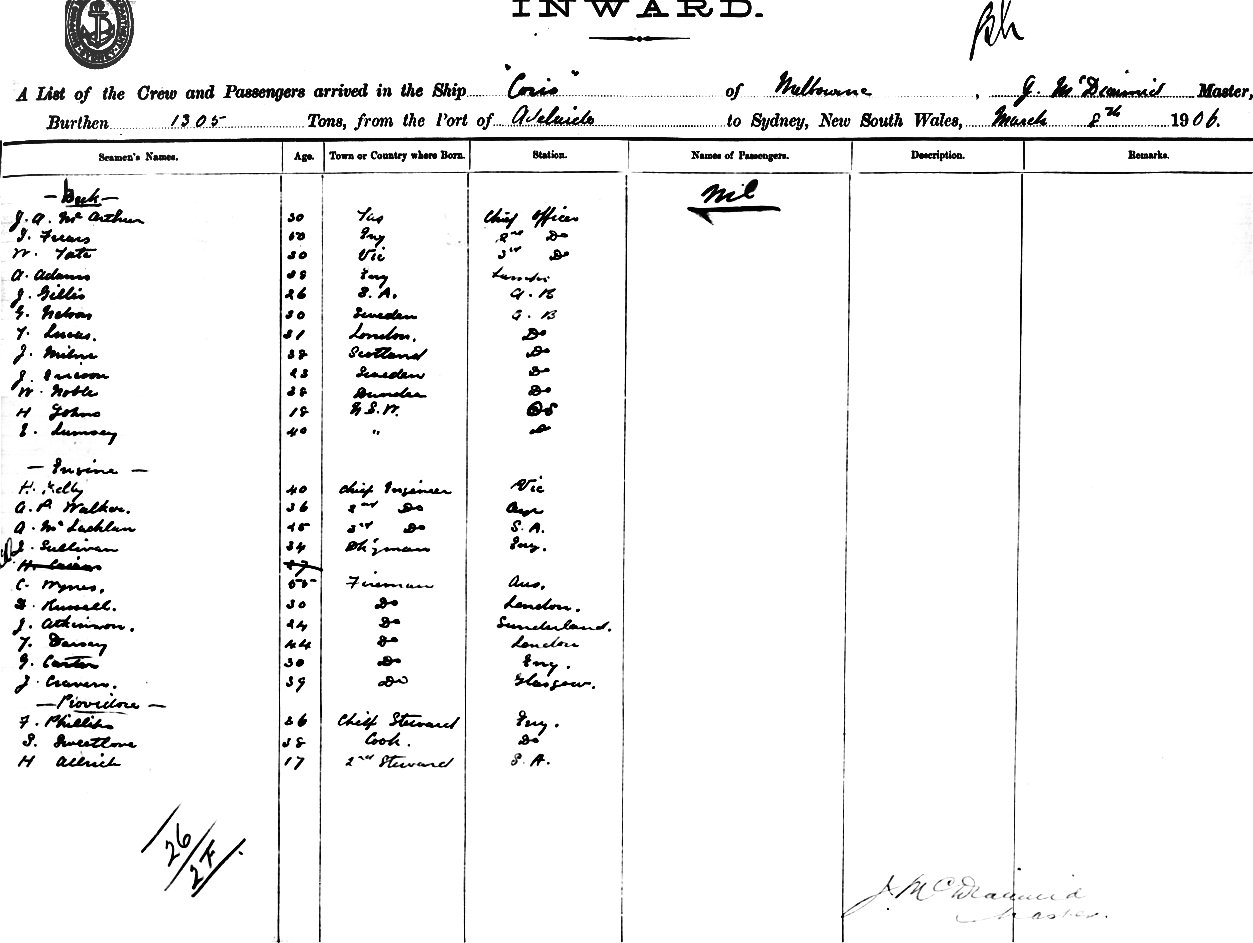 INWARD.
A List of the Crew and Passengers arrived in the Ship "Coris" of Melbourne, J. McDiarmid Master,
Burthen 1305 Tons, from the Port of Adelaide to Sydney, New South Wales, March 8th 1906.
Seamen's Names. Age. Town or Country where Born. Station. Names of Passengers. Description. Remarks.
— Deck — Nil
J. A. McArthur 30 Tas Chief Officer
50 Eng 2nd Do
W. Tate 30 Vic 3rd Do
A. Adams 38 Eng
J. Gillis 26 S. A. A. B
G. Nelson 30 Sweden A. B
T. Lucas. 31 London. Do
J. Milne 38 Scotland Do
J. 23 Sweden Do
W. Noble 38 Dundee Do
H Johns 18 N.S.W. OS
E. Lumsey 40 "
— Engine —
H. Kelly 40 Chief Engineer Vic
A. P. Walker. 36 2nd Do
A. McLachlan 45 3rd Do S. A.
Sullivan 34 Eng.
C. Wynes. 55 Fireman Aus.
Russell. 30 Do London.
J. Atkinson. 24 Do Sunderland.
T. Darsey 44 Do London
G. Carter 30 Do Eng.
J. Cravern. 39 Do Glasgow.
— Providore —
F. Phillips 36 Chief Steward Eng.
S. Sweetlove 38 Cook. Do
H Aldrich 17 2nd Steward S. A.
26
27
J. McDiarmid
Master.